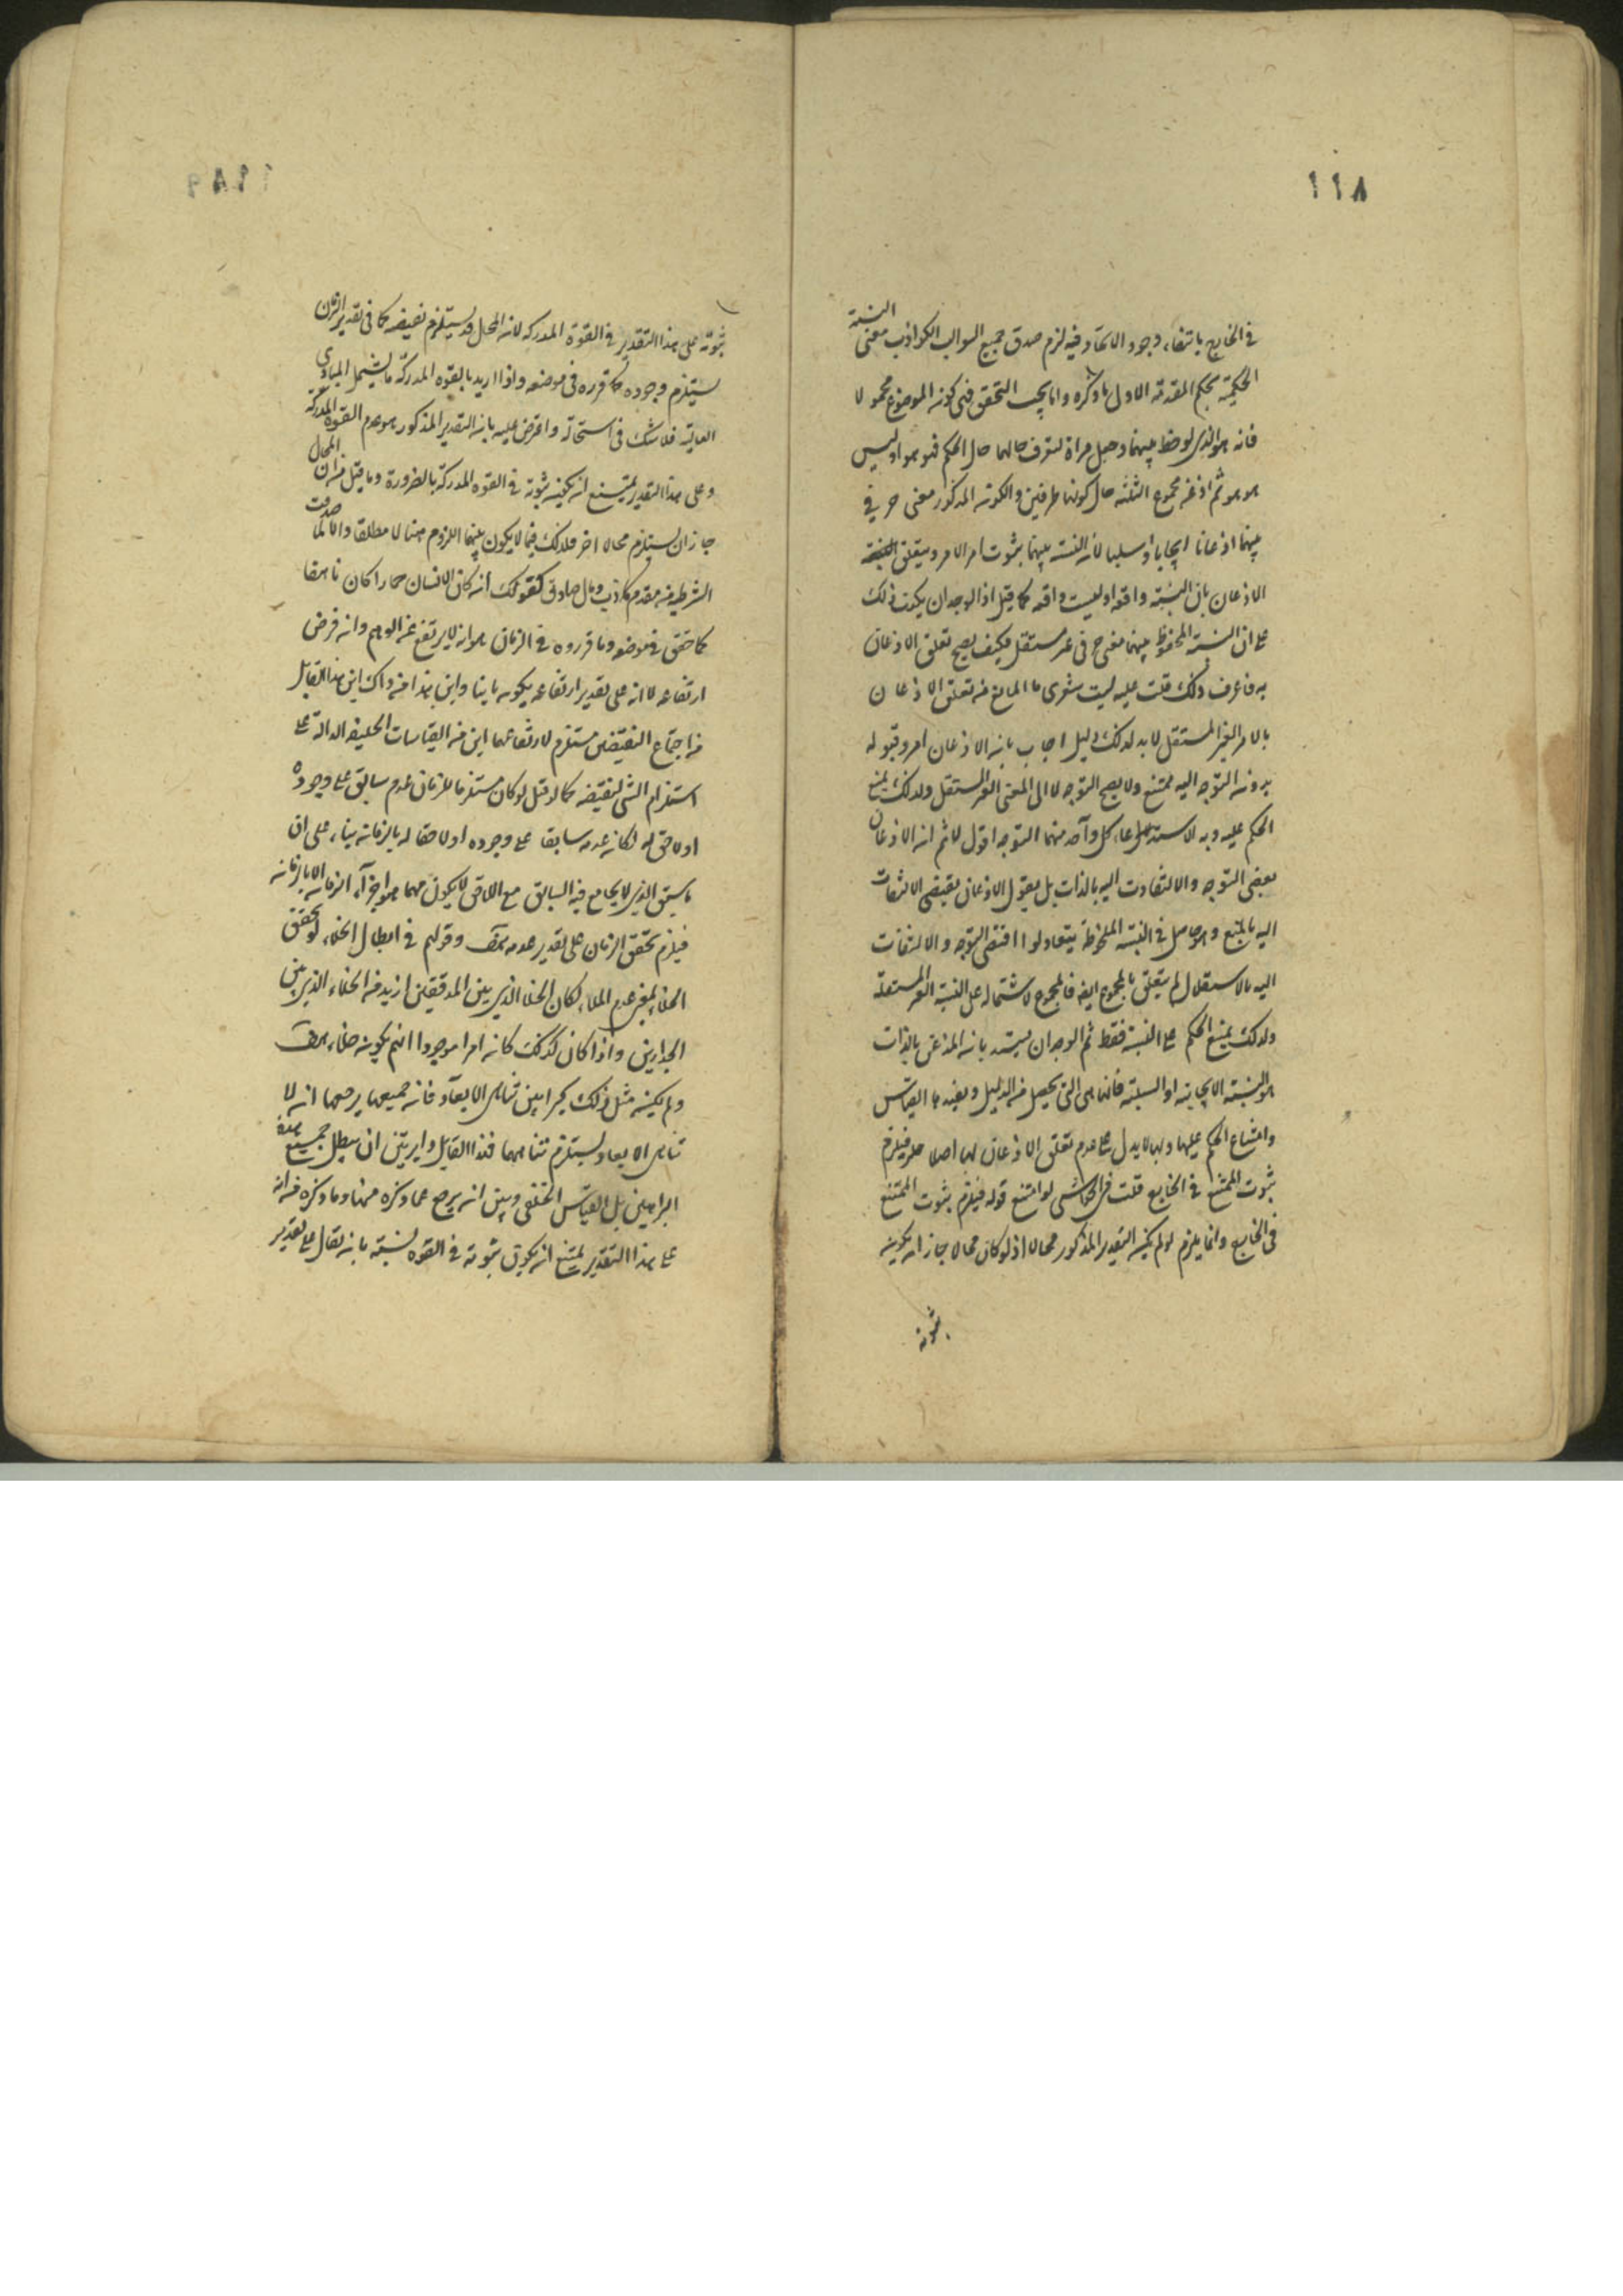 ١١٨
في الخارج بانتفاء وجود الاتحاد فيه لزم صدق جميع السوالب الكواذب معنى النسبة
الحكمية بحكم المقدمة الاولى ما ذكره وانما يجب التحقق في كونه الموضوع محمولا
فانه هو الذي لوحظ بينهما وجعل مرآة لتعرف حالهما حال الحكم فهو هو او ليس
هو هو ثم اذعن مجموع الثلثة حال كونها طرفين والكونه المذكور معنى حرفي
بينهما اذعانا ايجابيا او سلبيا لان النسبة بينهما بثبوت امر لامر ويتعلق
الاذعان بان النسبة واقعة او ليست واقعة كما قيل اذ الوجدان يكذب ذلك
على ان النسبة الملحوظة بينهما معنى حرفي غير مستقل فكيف يصح تعلق الاذعان
به فاعرف ذلك قلت عليه ليت شعري ما المانع من تعلق الاذعان
بالامر الغير المستقل لا بد لذلك من دليل اجاب بان الاذعان امر وقبوله
بدون التوجه اليه ممتنع ولا يصح التوجه الا الى المعنى الغير المستقل ولذلك يمتنع
الحكم عليه وبه لاستدعاء كل واحد منهما التوجه اقول لا ثم ان الاذعان
يقتضي التوجه والالتفات اليه بالذات بل يقول الاذعان يقتضي الالتفات
اليه بالتبع وهو حاصل في النسبة الملحوظة بتعاد لو اقتضى التوجه والالتفات
اليه بالاستقلال لم يتعلق بالمجموع ايضا فالمجموع لاشتماله على النسبة الغير المستقلة
ولذلك يمتنع الحكم على النسبة فقط ثم الوجدان يشهد بان المذعن بالذات
هو النسبة الايجابية او السلبية فانها هي التي يحصل من الدليل ويفيدها القياس
وامتناع الحكم عليها وبها لا يدل على عدم تعلق الاذعان لها اصلا فيلزم
ثبوت الممتنع في الخارج قلت في الحواشي لو امتنع قوله فيلزم ثبوت الممتنع
في الخارج وانما يلزم لو لم يكن التقدير المذكور محالا اذ لو كان محالا جاز ان يكون
ثبوته
ثبوته على هذا التقدير في القوة المدركة لان المحال قد يستلزم نقيضه كما في تقدير الزمان
يستلزم وجوده كما قرره في موضعه واذا اريد بالقوة المدركة ما يشمل المبادي
العالية فلا شك في استحالته واعترض عليه بان التقدير المذكور هو عدم القوة المدركة
وعلى هذا التقدير يمتنع ان يكون ثبوته في القوة المدركة بالضرورة وما قيل من ان المحال
جاز ان يستلزم محالا اخر فلذلك فيما لا يكون بينهما اللزوم هنا لا مطلقا والا لما صدقت
الشرطية من مقدم كاذب وتال صادق كقولك ان كان الانسان حمارا كان ناهقا
كما حقق في موضعه وما قرروه في الزمان هو انه لا يرتفع عن الوهم وانه فرض
ارتفاعه لا انه على تقدير ارتفاعه يكون باينا واين هذا من ذاك اين هذا القايل
من اجتماع النقيضين مستلزم لارتفاعهما اين من القياسات الخلفية الدالة على
استلزام الشي لنقيضه كما لو قيل لو كان مستلزما للزمان عدم سابق على وجوده
او لاحق له لكان عدمه سابقا على وجوده او لاحقا له بالزمان بناء على ان
ما سبق الذي لا يجامع فيه السابق مع اللاحق لا يكون مهما هو اجزاء الزمان الا بالزمان
فيلزم تحقق الزمان على تقدير عدمه هف وقولهم في ابطال الخلاء لو تحقق
الخلاء بمعنى عدم الملاء لكان الخلاء الذي بين المدققين ازيد من الخلاء الذي بين
الجدارين واذا كان كذلك كان امرا موجودا فلم يكن خلاء هف
ولم يكن مثل ذلك كبراهين تناهي الابعاد فان جميعها يرجعها ان لا
تناهي الابعاد يستلزم تناهيها فهذا القايل وايرين ان يبطل جميع هذه
البراهين بل القياس الخلفي وبين ان يرجع عما ذكره ههنا وما ذكره من انه
على هذا التقدير يمتنع ان يكون ثبوته في القوة نسبة بانه يقال على تقدير